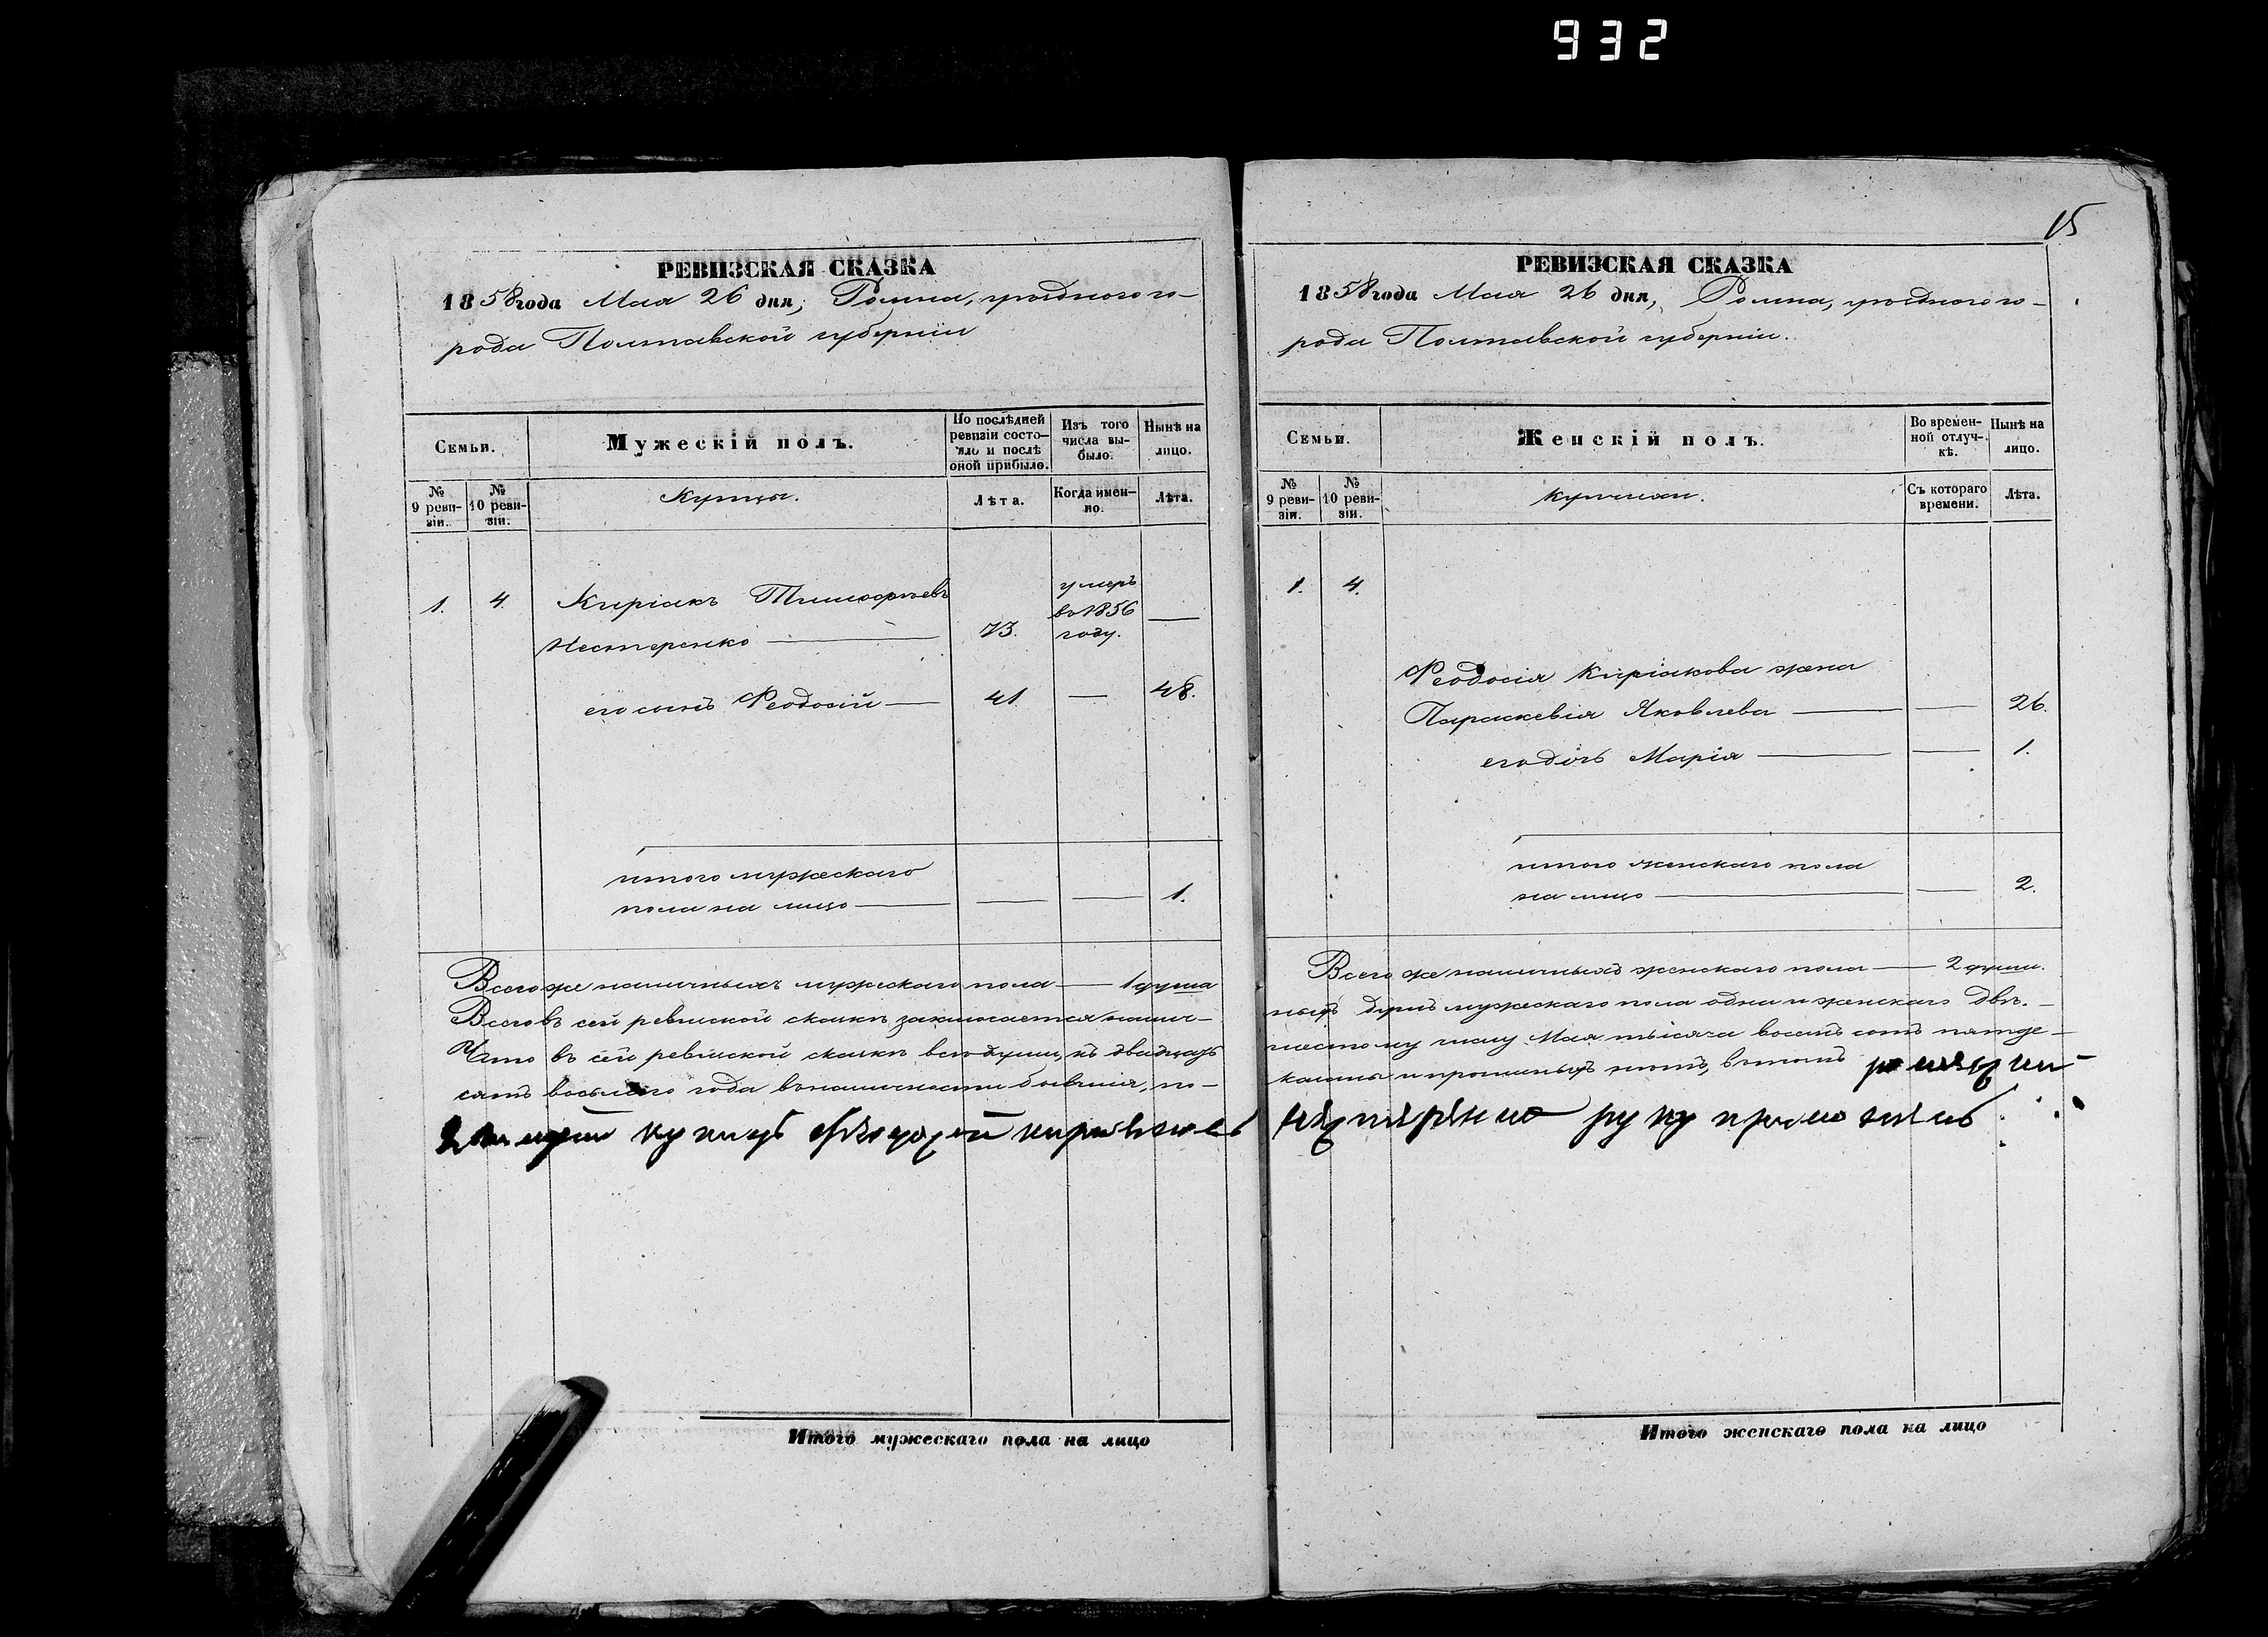 932
15
РЕВИЗСКАЯ СКАЗКА
1858 года Мая 26 дня, Ромна, уѣзднаго го-
рода Полтавской губерніи
Семьи.
Мужескій полъ.
По послѣдней ревизіи состо-яло и послѣ оной прибыло.
Изъ того числа вы-было.
Нынѣ на лицо.
№ 9 реви-зіи.
№ 10 реви-зіи.
Купцы.
Лѣта.
Когда имен-но.
Лѣта.
1. 4. Киріакъ Тимофѣевъ
Нестеренко — 73. умеръ въ 1856 году. —
его сынъ Феодосій — 41. — 48.
итого мужескаго
пола на лицо — — — 1.
Всего же наличныхъ мужескаго пола — 1 душа
Всего въ сей ревиской сказкѣ заключается налич-
Что въ сей ревиской сказкѣ всѣ души, къ двадцать
сятъ восьмаго года въ наличности бывшія, по-
купецъ Феодосій Киріяковъ
Итого мужескаго пола на лицо
РЕВИЗСКАЯ СКАЗКА
1858 года Мая 26 дня, Ромна, уѣзднаго го-
рода Полтавской губерніи.
Семьи.
Женскій полъ.
Во времен-ной отлуч-кѣ.
Нынѣ на лицо.
№ 9 реви-зіи.
№ 10 реви-зіи.
Купчихи.
Съ котораго времени.
Лѣта.
1. 4.
Феодосія Киріакова жена
Параскевія Яковлева — — 26.
его дочь Марія — — 1.
итого женскаго пола
на лицо — — 2.
Всего же наличныхъ женскаго пола — 2 души.
ныхъ душъ мужескаго пола одна и женскаго двѣ. —
шестому числу Мая тысяча восемь сотъ пятде-
казаны и прописныхъ нѣтъ, в томъ
руку приложилъ
Итого женскаго пола на лицо